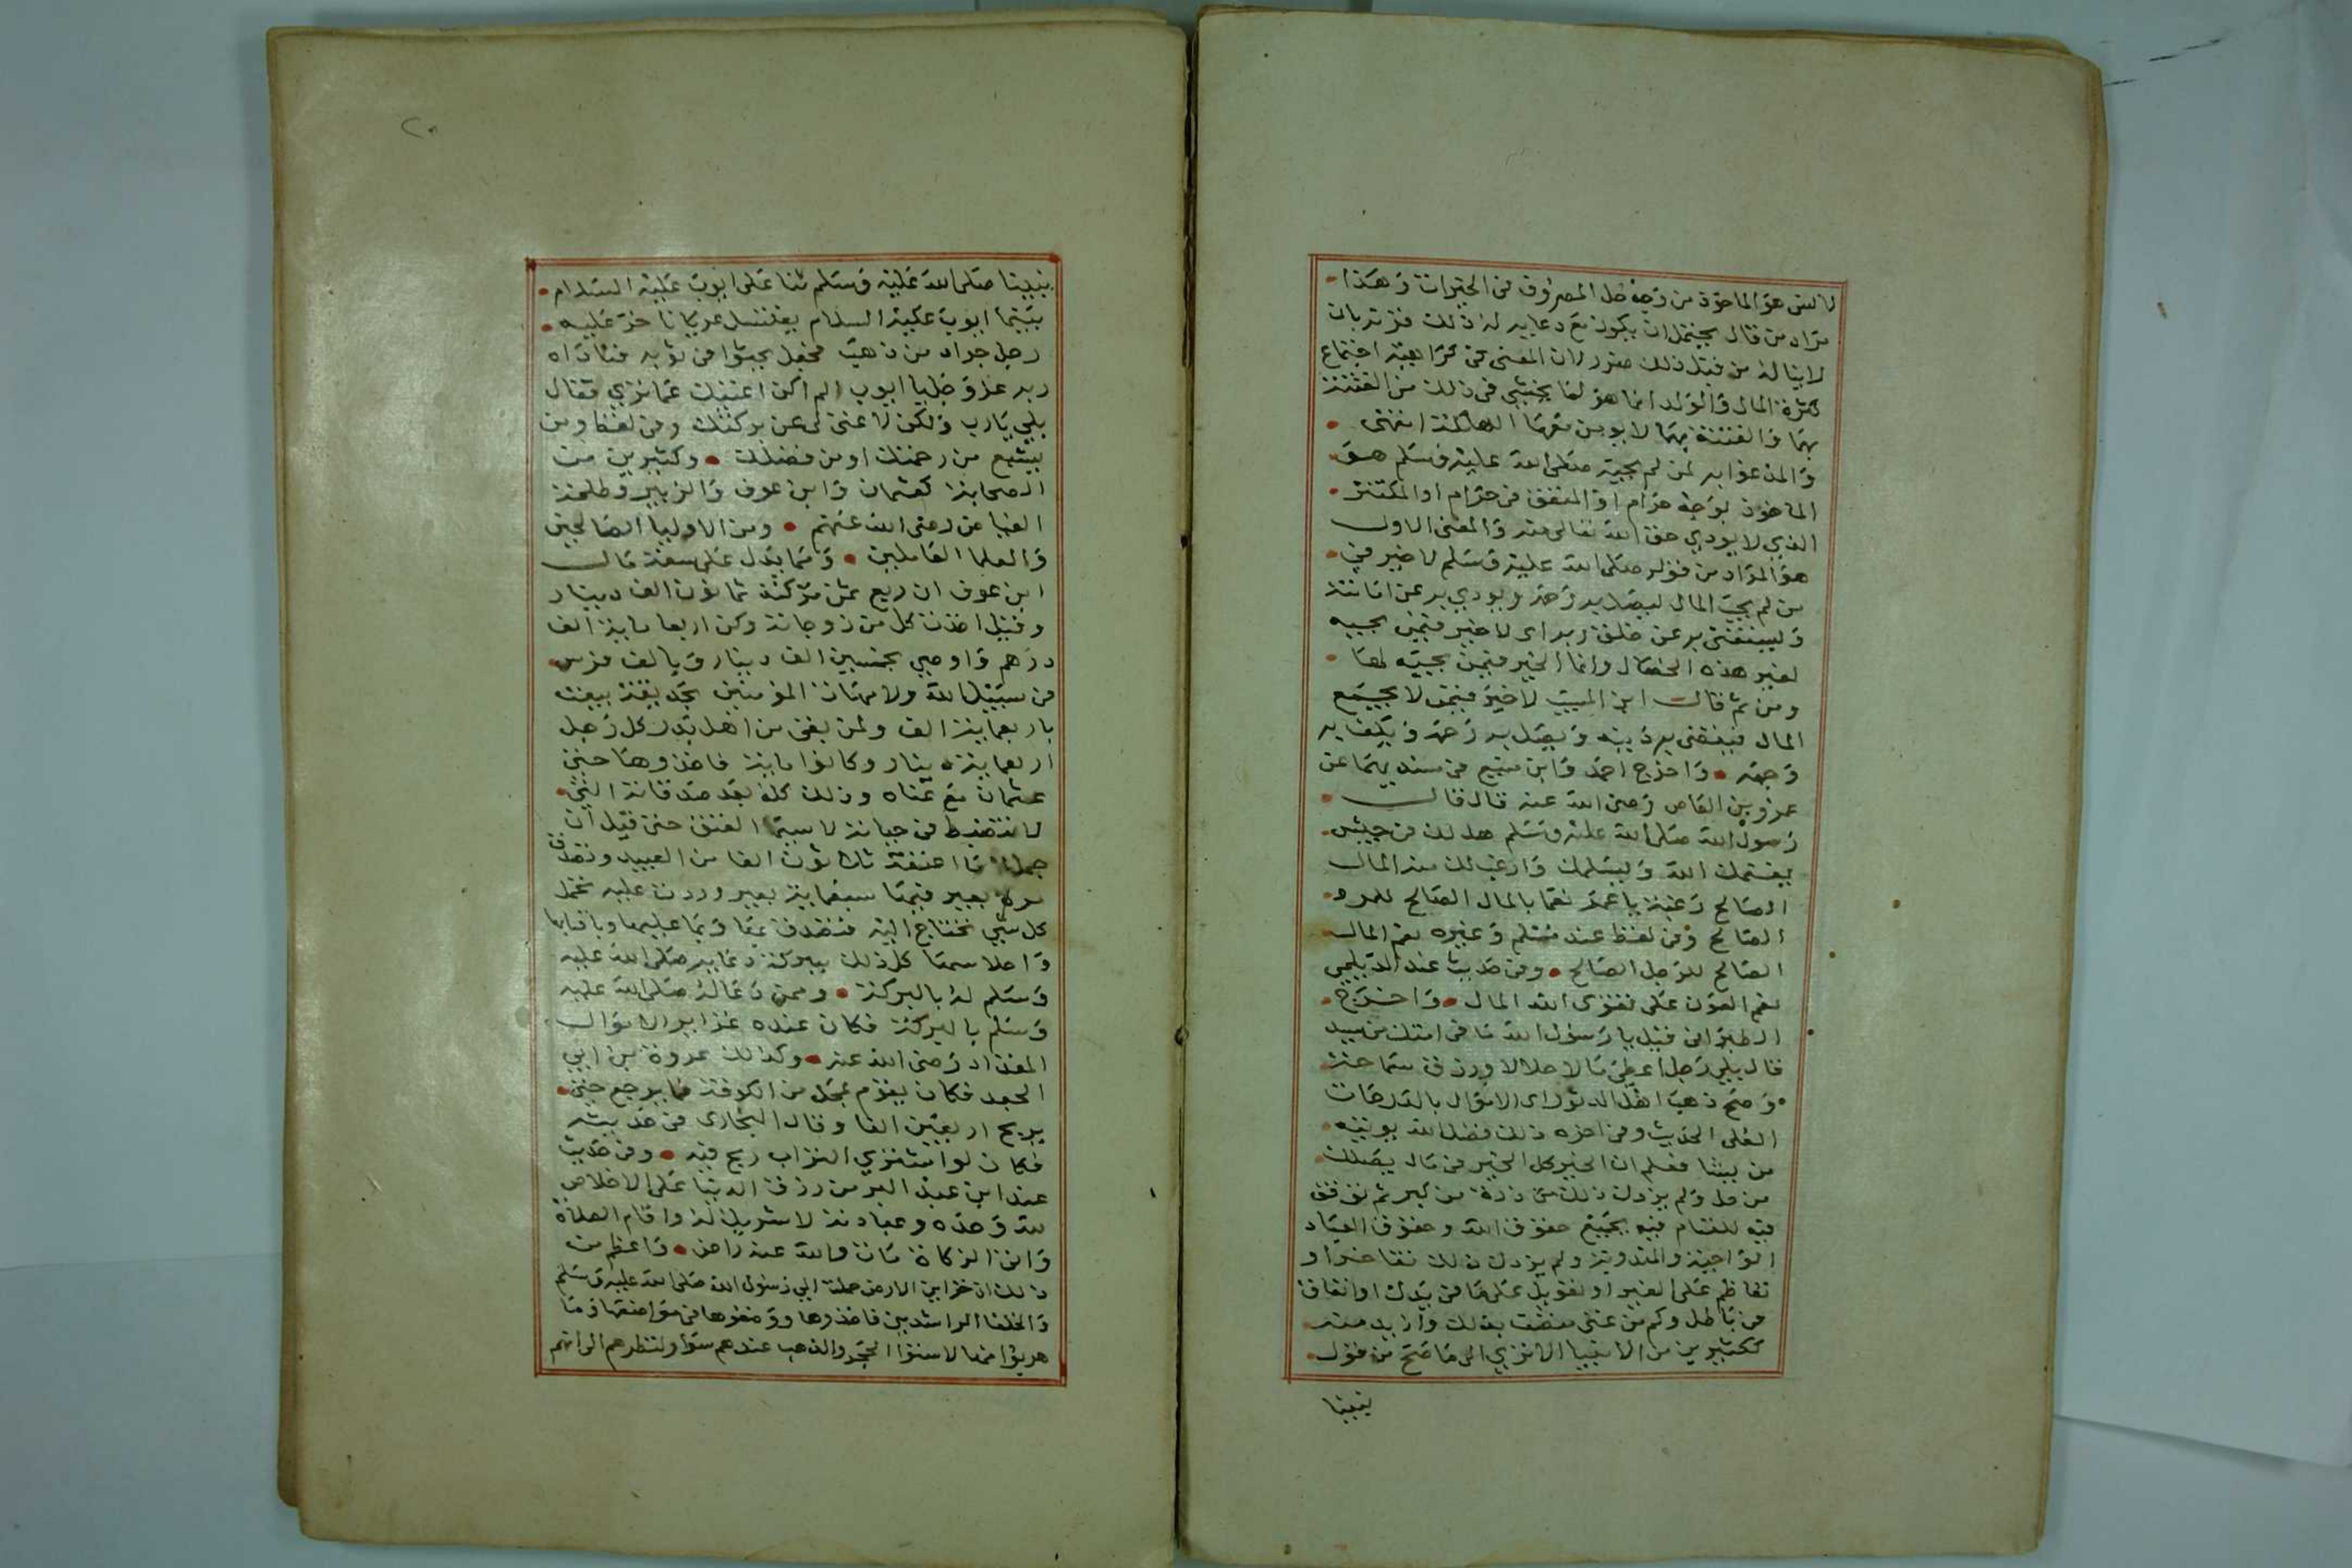 لا لسن هو الماخوذ من وجه حل المصروف في الخيرات وهذا
مراد من قال يحتمل ان يكون مع دعايه له ذلك قرنه بان
لا يناله من قبل ذلك ضرر لان المعنى في كراهية اجتماع
كثرة المال والولد انما هو لما يخشى في ذلك من الفتنة
بهما والفتنة بهما لا يومن معها الهلكة انتهى
والمدعو به لمن لم يجبه صلى الله عليه وسلم هو
الماخوذ بوجه حرام او المنفق في حرام او المكتنز
الذي لا يودي حق الله تعالى منه والمعنى الاول
هو المراد من قوله صلى الله عليه وسلم لا خير في
من لم يحب المال ليصل به رحمه ويودي به عن امانته
وليستغني به عن خلق ربه اي لا خير فيمن يحبه
لغير هذه الخصال وانما الخير فيمن يحبه لها
ومن ثم قال ابن المسيب لا خير فيمن لا يجمع
المال فيقضي به دينه ويصل به رحمه ويكف به
وجهه واخرج احمد وابن منيع في مسنديهما عن
عمرو بن العاص رضى الله عنه قال قال
رسول الله صلى الله عليه وسلم هل لك في جيش
يغنمك الله ويسلمك وارغب لك من المال
الصالح رغبة يا عمرو نعما بالمال الصالح للمرء
الصالح وفي لفظ عند مسلم وغيره نعم المال
الصالح للرجل الصالح وفي حديث عند الديلمي
نعم العون على تقوى الله المال واخرج
الطبراني قيل يا رسول الله ما في امتك من سيد
قال بلى رجل اعطى مالا حلالا ورزق سماحة
وصح ذهب اهل الدثور اى الاموال بالدرجات
العلى الحديث وفي اخره ذلك فضل الله يوتيه
من يشا فعلم ان الخير كل الخير في مال يصلك
من حل ولم يزدك ذلك من ذرة من كبر ثم توفق
فيه للقيام فيه بجميع حقوق الله وحقوق العباد
الواجبة والمندوبة ولم يزدك ذلك تفاخرا و
تعاظم على الغير او تعويل على ما في يدك او انفاق
في باطل وكم من غني متصف بذلك وازيد منه
ككثيرين من الانبيا الا ترى الى ما صح من قول
نبينا
نبينا صلى الله عليه وسلم ثنا على ايوب عليه السلام
بينما ايوب عليه السلام يغتسل عريانا خر عليه
رجل جراد من ذهب فجعل يحثوا في ثوبه فناداه
ربه عز وجل يا ايوب الم اكن اغنيتك عما ترى فقال
بلى يا رب ولكن لا غنى لى عن بركتك وفي لفظ ومن
يشبع من رحمتك او من فضلك وكثيرين من
الصحابة كعثمان وابن عوف والزبير وطلحة
الفياض رضى الله عنهم ومن الاوليا الصالحين
والعلما العاملين ومما يدل على سعة مال
ابن عوف ان ربع ثمن تركته ثمانون الف دينار
وقيل اخذت كل من زوجاته وكن اربعا ماية الف
درهم واوصى بخمسين الف دينار وبالف فرس
في سبيل الله ولامهات المومنين بحديقة بيعت
باربعماية الف ولمن بقى من اهل بدر كل رجل
اربعماية دينار وكانوا ماية فاخذوها حتى
عثمان مع غناه وذلك كله بعد صدقاته التي
لا تنضبط في حياته لا سيما العتق حتى قيل ان
جملة ما اعتقه ثلاثون الفا من العبيد وتصدق
مرة بعير فيها سبعماية بعير وردت عليه تحمل
كل شي تحتاج اليه فتصدق بها وبما عليها وباقتابها
واحلاسها كل ذلك ببركة دعايه صلى الله عليه
وسلم له بالبركة وممن دعا له صلى الله عليه
وسلم بالبركة فكان عنده غزاير الاموال
المقداد رضى الله عنه وكذلك عروة بن ابي
الجعد فكان يقوم بمحل من الكوفة فما يرجع حتى
يربح اربعين الفا وقال البخارى في حديثه
فكان لو اشترى التراب ربح فيه وفي حديث
عند ابن عبد البر من رزق الدنيا على الاخلاص
لله وحده وعبادته لا شريك له واقام الصلاة
واتى الزكاة مات والله عنه راض واعظم من
ذلك ان خزاين الارض حملت الى رسول الله صلى الله عليه وسلم
والخلفا الراشدين فاخذوها ووضعوها في مواضعها وما
هربوا منها لاستوا الحجر والذهب عندهم سوا ولنظرهم الى انهم